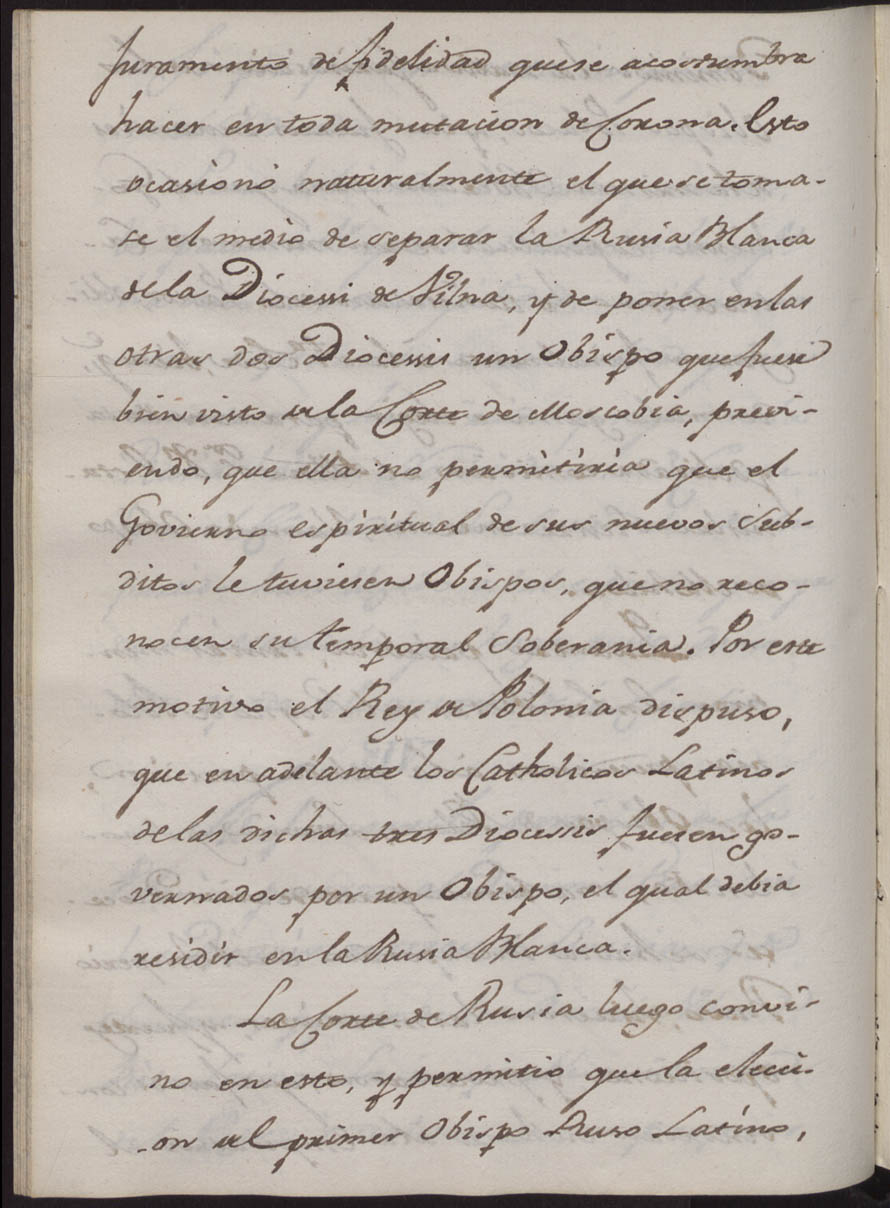 Juramento de fidelidad quese acostumbra
hacer en toda mutacion de Corona. Esto
ocasionó naturalmente el que se toma-
se el medio de separar la Rusia Blanca
dela Diocessi de Vilna, y de poner en las
otras dos Diocessis un Obispo que fuese
bien visto de la Corte de Moscobia, previ-
endo, que ella no permitiria que el
Govierno espiritual de sus nuevos Sub-
ditos le tuviesen Obispos, que no reco-
nocen su temporal Soberania. Por este
motivo el Rey de Polonia dispuso,
que en adelante los Catholicos Latinos
de las dichas tres Diocessis fuesen go-
vernados por un Obispo, el qual debia
residir en la Rusia Blanca.
La Corte de Rusia luego convi-
no en esto, y permitio que la elecci-
-on del primer Obispo Ruso Latino,